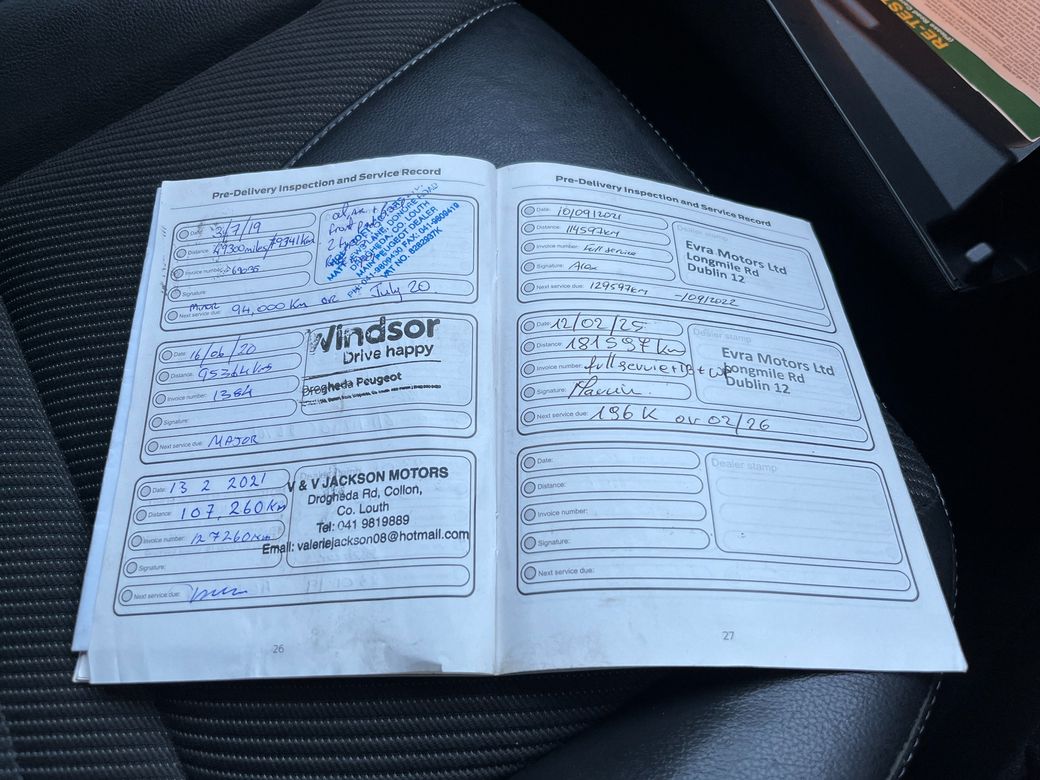 RE-TEST
Pre-Delivery Inspection and Service Record
Date: 31/7/19
Distance: 49300miles/79341km
Invoice number: 69035
Signature:
MINOR
Next service due: 94,000 Km OR July 20
oil,
front
2
DONORE ROAD
DROGHEDA CO. LOUTH
MAIN PEUGEOT DEALER
FAX: 041-9809419
VAT NO.
Date: 16/06/20
Distance: 95364kms
Invoice number: 1384
Signature:
Next service due: MAJOR
Windsor
Drive happy
Drogheda Peugeot
Date: 13 2 2021
Distance: 107,260km
Invoice number: 127260km
Signature:
Next service due:
V & V JACKSON MOTORS
Drogheda Rd, Collon,
Co. Louth
Tel: 041 9819889
Email: valeriejackson08@hotmail.com
26
Pre-Delivery Inspection and Service Record
Date: 10/09/2021
Distance: 114597km
Invoice number: Full service
Signature: Alex
Next service due: 129597km -/09/2022
Dealer stamp
Evra Motors Ltd
Longmile Rd
Dublin 12
Date: 12/02/25
Distance: 181597 km
Invoice number: full service + TB + WP
Signature:
Next service due: 196 K or 02/26
Dealer stamp
Evra Motors Ltd
Longmile Rd
Dublin 12
Date:
Distance:
Invoice number:
Signature:
Next service due:
Dealer stamp
27